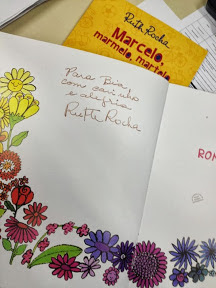 Ruth Rocha
Marcelo,
marmelo, martelo
Para Bia
com carinho
e alegria
Ruth Rocha
ROM